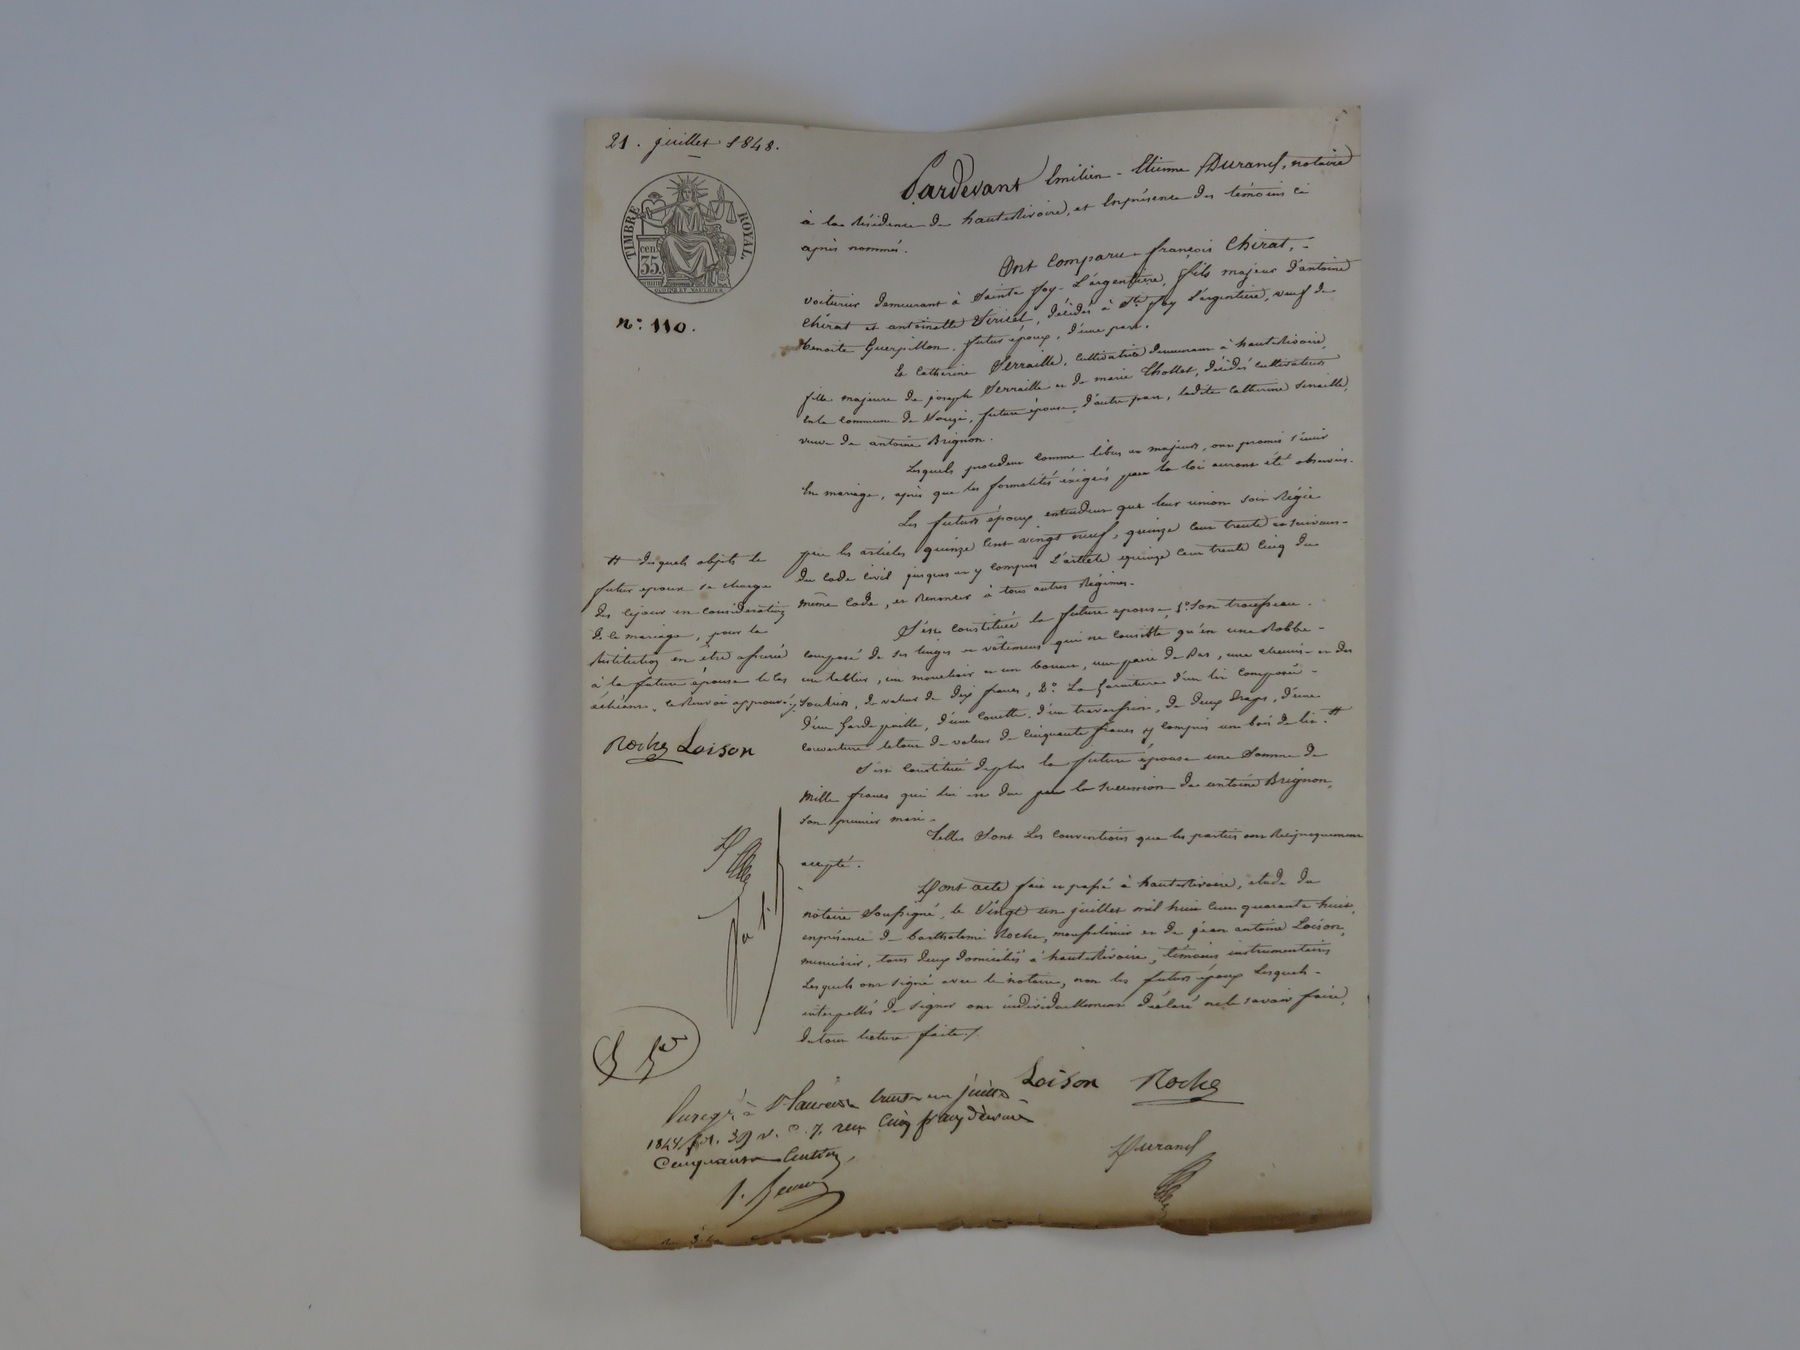 21. juillet 1848.
TIMBRE ROYAL.
cen. 35.
n.° 110.
Pardevant Emilien - Etienne Durand, notaire
à la Résidence de hauterivoire, et Enprésence des témoins ci
après nommés.
Ont comparu françois Chirat, -
voiturier demeurant à Sainte foy - L'argentière, fils majeur d'antoine
Chirat et antoinette Viricel, décédés à Ste foy L'argentière, veuf de
Benoite Guerpillon, futur époux, d'une part.
Et Catherine Serraille, cultivatrice demeurant à hauterivoire,
fille majeure de joseph Serraille et de marie Thollet, décédés cultivateurs
en la commune de Souzi, future épouse, d'autre part, ladite Catherine Serraille,
veuve de antoine Brignon.
Lesquels procedant comme libres et majeurs, ont promis s'unir
En mariage, après que les formalités éxigées par la loi auront été observées.
Les futurs époux entendent que leur union soit Régie
par les articles quinze cent vingt neuf, quinze cent trente et suivans -
du Code Civil jusques et y compris L'article quinze cent trente cinq du
même Code, et Renoncer à tous autres Régimes.
S'est constituée la future epouse, 1° Son trousseau -
composé de ses linges et vêtemens qui ne consiste qu'en une Robbe -
un tablier, un mouchoir et un bonnet, une paire de Bas, une chemise et des
Souliers, de valeur de dix francs, 2° La Garniture d'un lit composée -
d'un Garde paille, d'une couette, d'un traversin, de deux draps, d'une
couverture letout de valeur de cinquante francs y compris un bois de lit. #
S'est constituée deplus la future épouse une Somme de
Mille francs qui lui est due par la succession de antoine Brignon,
Son premier mari.
Telles Sont Les Conventions que les parties ont Réciproquement
accepté.
Dont acte fait et passé à hauterivoire, etude du
notaire Soussigné, le Vingt un juillet mil huit cent quarante huit,
enprésence de barthelemi Roche, et de jean antoine Loison,
menuisier, tous deux domiciliés à hauterivoire, témoins instrumentaires
Lesquels ont signé avec le notaire, non les futurs époux Lesquels -
interpellés de Signer ont individuellement déclaré ne le savoir faire,
dutout lecture faite /.
# desquels objets le
futur epoux se charge
dès cejour en considération
de ce mariage, pour la
Restitution en être assurée
à la future épouse le cas
échéant. ce Renvoi approuvé /.
Roche Loison
Loison Roche
Durand
Enregé à St Laurent trente un juillet
1848 fol. 39 v. c. 7. reçu cinq francs décime
Cinquante Centimes,